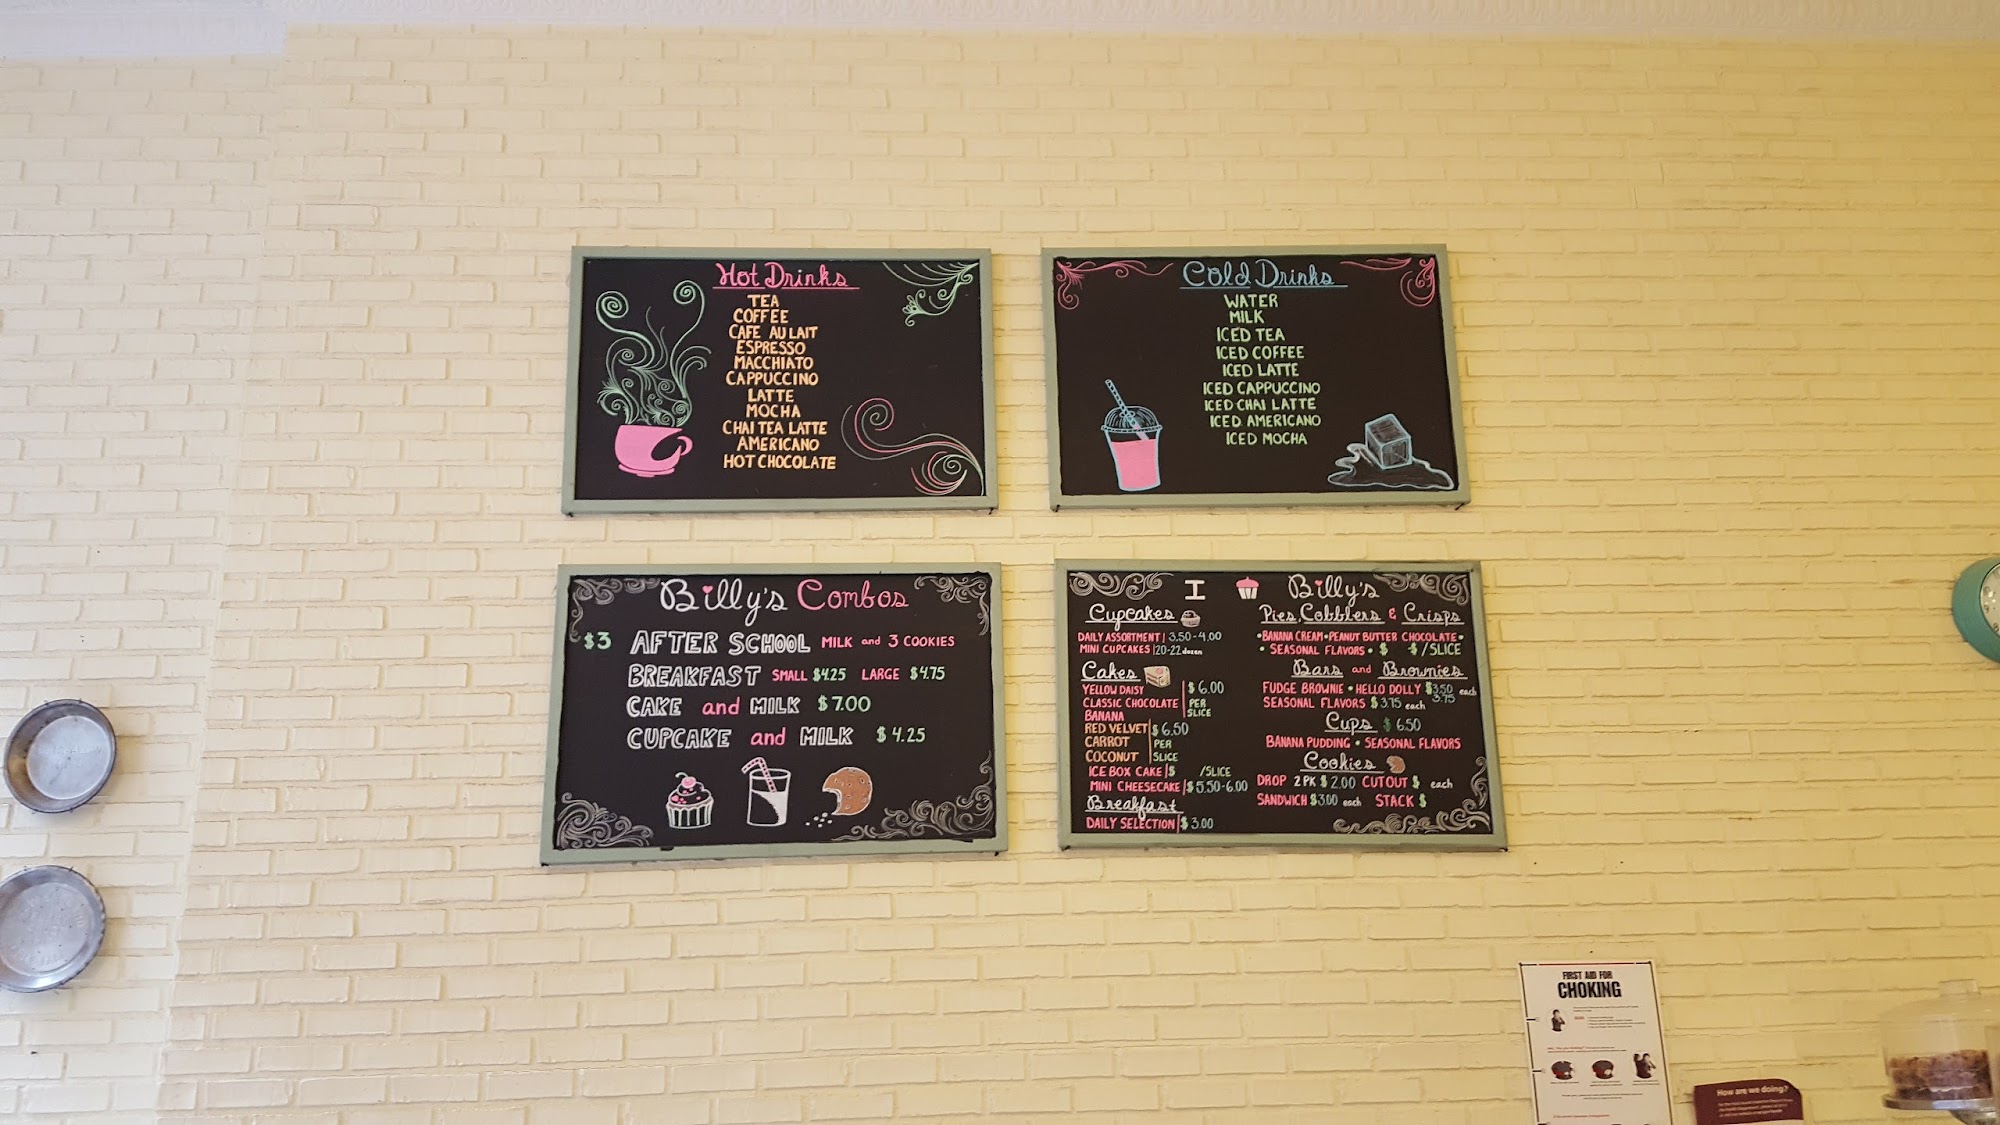 Hot Drinks
TEA
COFFEE
CAFE AU LAIT
ESPRESSO
MACCHIATO
CAPPUCCINO
LATTE
MOCHA
CHAI TEA LATTE
AMERICANO
HOT CHOCOLATE
Cold Drinks
WATER
MILK
ICED TEA
ICED COFFEE
ICED LATTE
ICED CAPPUCCINO
ICED CHAI LATTE
ICED AMERICANO
ICED MOCHA
Billy's Combos
$3 AFTER SCHOOL MILK and 3 COOKIES
BREAKFAST SMALL $4.25 LARGE $4.75
CAKE and MILK $7.00
CUPCAKE and MILK $4.25
I Billy's
Cupcakes
DAILY ASSORTMENT | 3.50-4.00
MINI CUPCAKES | 20-22 dozen
Cakes
YELLOW DAISY $6.00
CLASSIC CHOCOLATE PER
BANANA SLICE
RED VELVET $6.50
CARROT PER
COCONUT SLICE
ICE BOX CAKE | $ /SLICE
MINI CHEESECAKE | $5.50-6.00
Breakfast
DAILY SELECTION | $3.00
Pies, Cobblers & Crisps
•BANANA CREAM•PEANUT BUTTER CHOCOLATE•
• SEASONAL FLAVORS • $ $/SLICE
Bars and Brownies
FUDGE BROWNIE • HELLO DOLLY $3.50 each
SEASONAL FLAVORS $3.75 each 3.75
Cups $6.50
BANANA PUDDING • SEASONAL FLAVORS
Cookies
DROP 2 PK $2.00 CUTOUT $ each
SANDWICH $3.00 each STACK $
FIRST AID FOR
CHOKING
How are we doing?